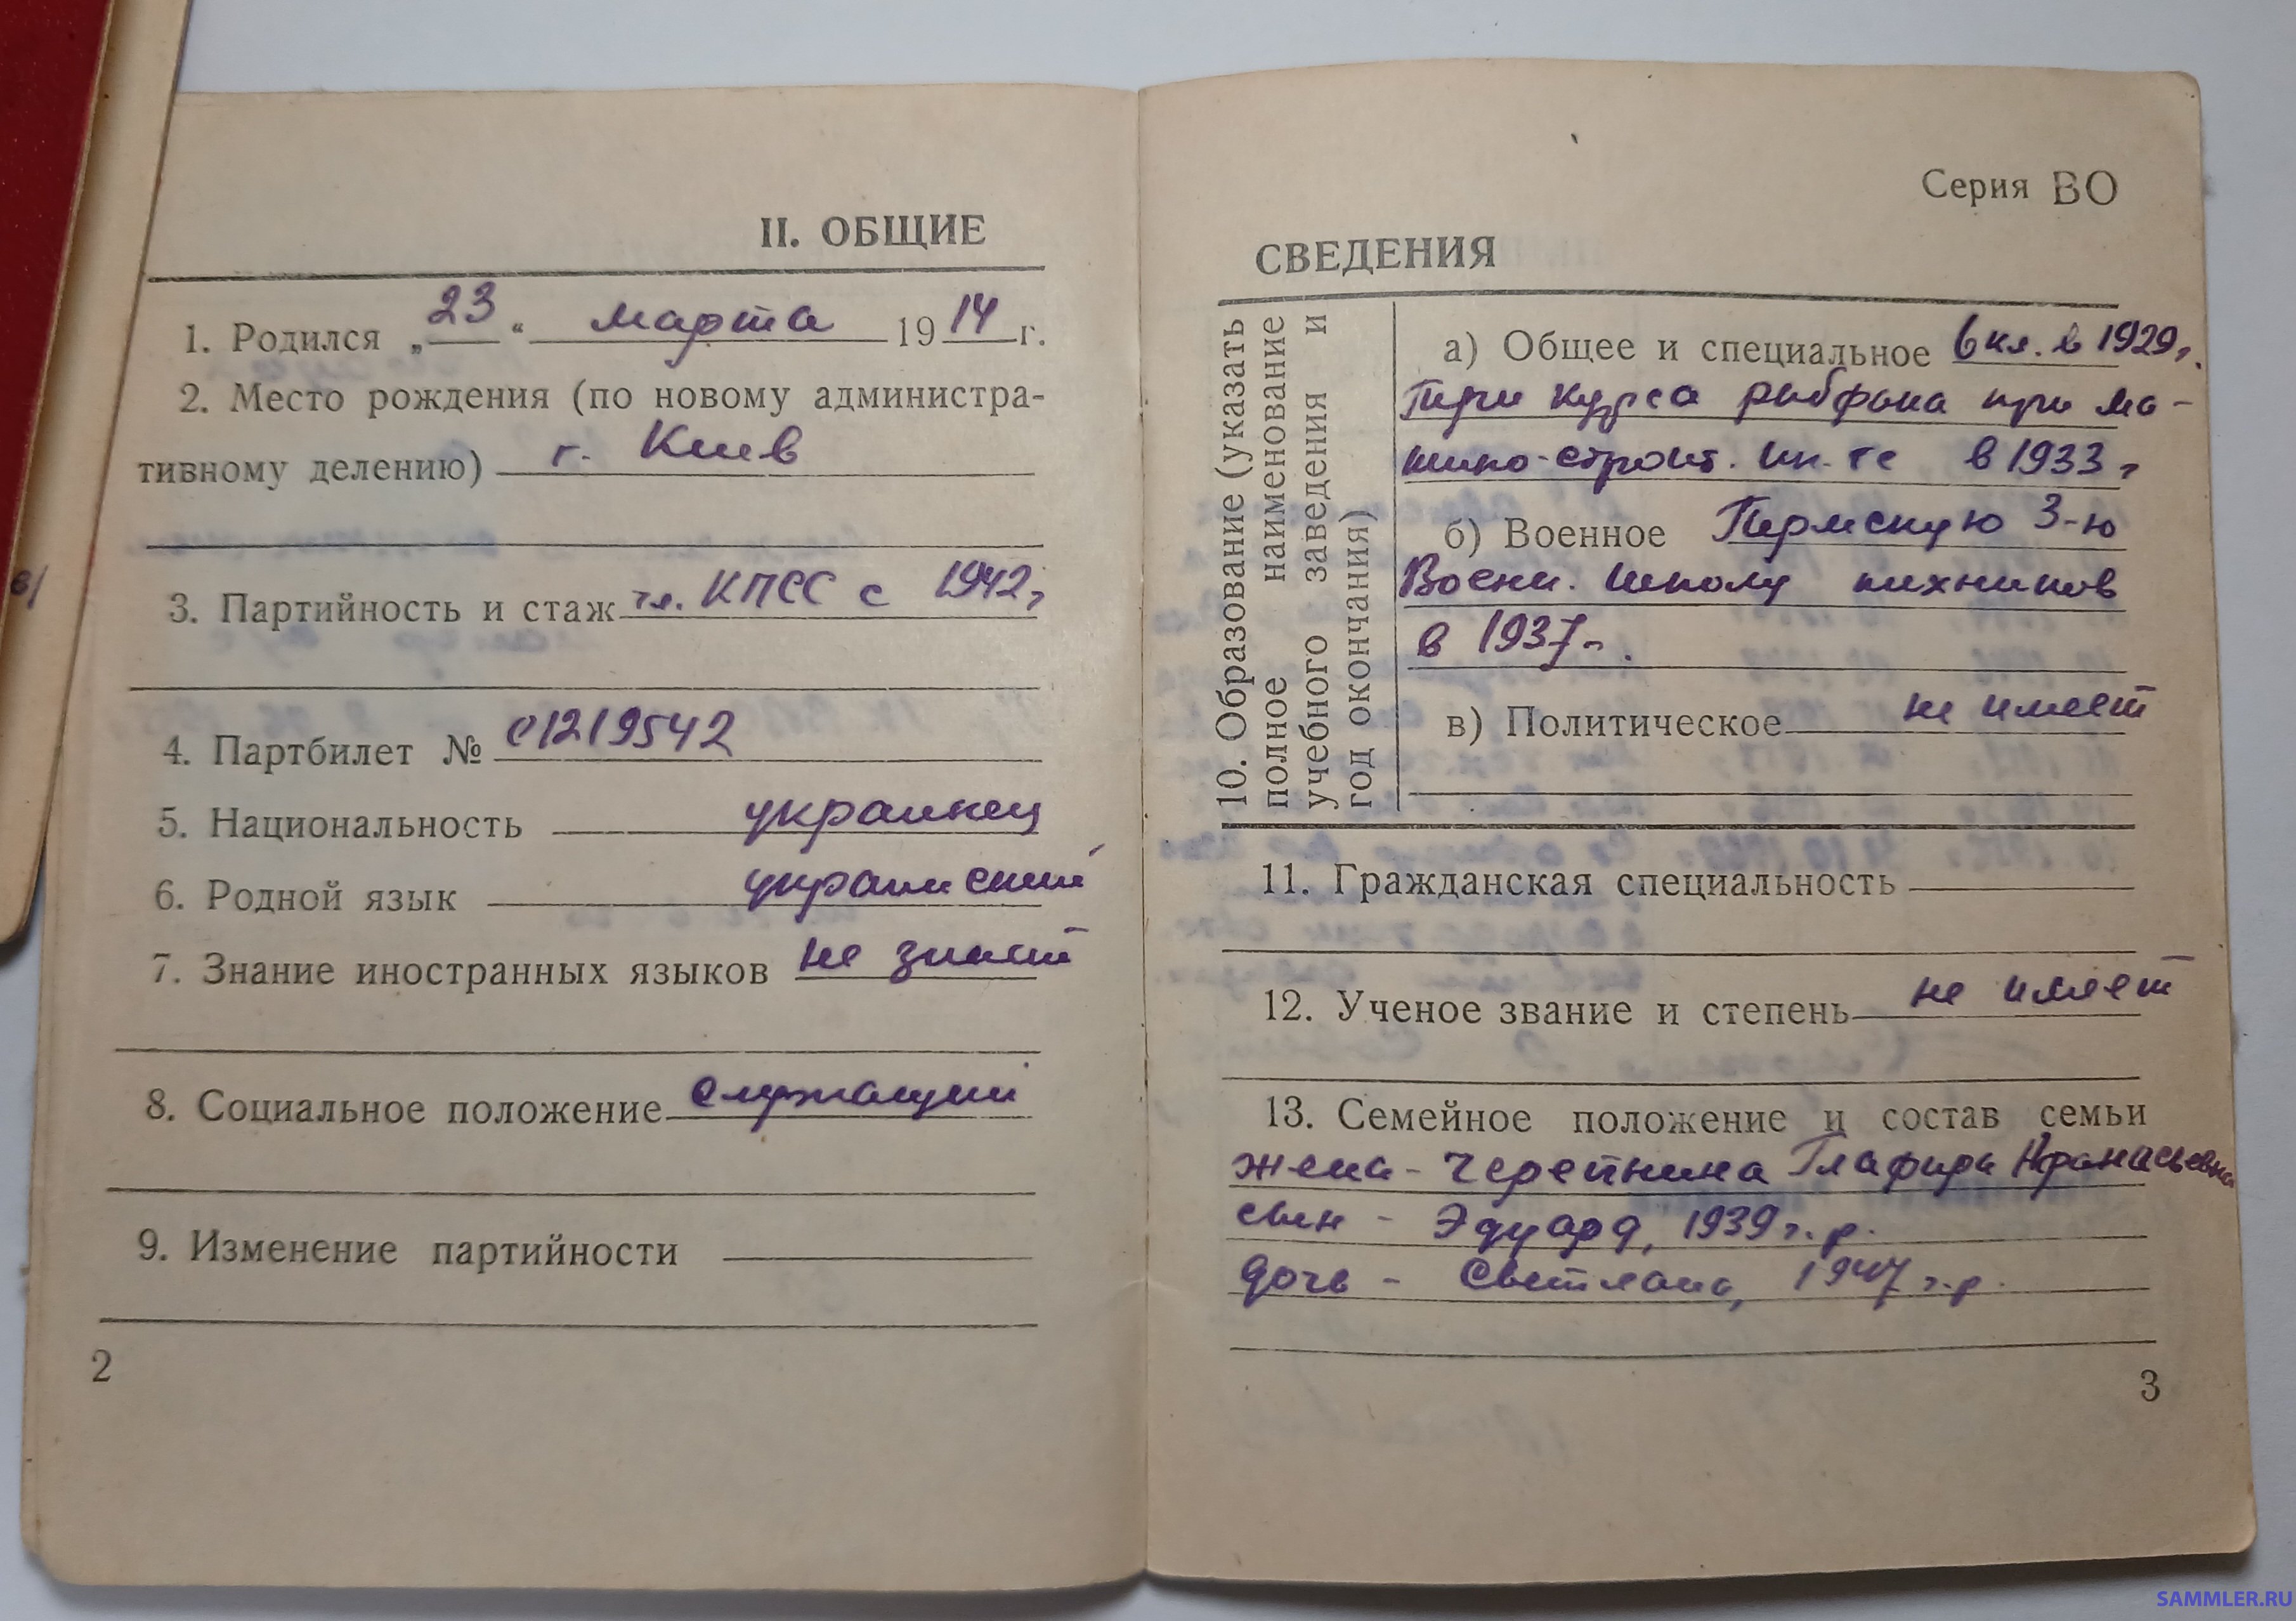 II. ОБЩИЕ
1. Родился „23“ марта 1914 г.
2. Место рождения (по новому администра-
тивному делению) г. Киев
3. Партийность и стаж чл. КПСС с 1942 г
4. Партбилет № 01219542
5. Национальность украинец
6. Родной язык украинский
7. Знание иностранных языков не знает
8. Социальное положение служащий
9. Изменение партийности
2
Серия ВО
СВЕДЕНИЯ
10. Образование (указать
полное наименование
учебного заведения и
год окончания)
а) Общее и специальное 6 кл. в 1929 г.
Три курса рабфака при ма-
шино-строит. ин-те в 1933 г
б) Военное Пермскую 3-ю
Воен. школу техников
в 1937 г.
в) Политическое не имеет
11. Гражданская специальность
12. Ученое звание и степень не имеет
13. Семейное положение и состав семьи
жена - Черепнина Глафира Афанасьевна
сын - Эдуард, 1939 г.р.
дочь - Светлана, 1947 г.р.
3
SAMMLER.RU